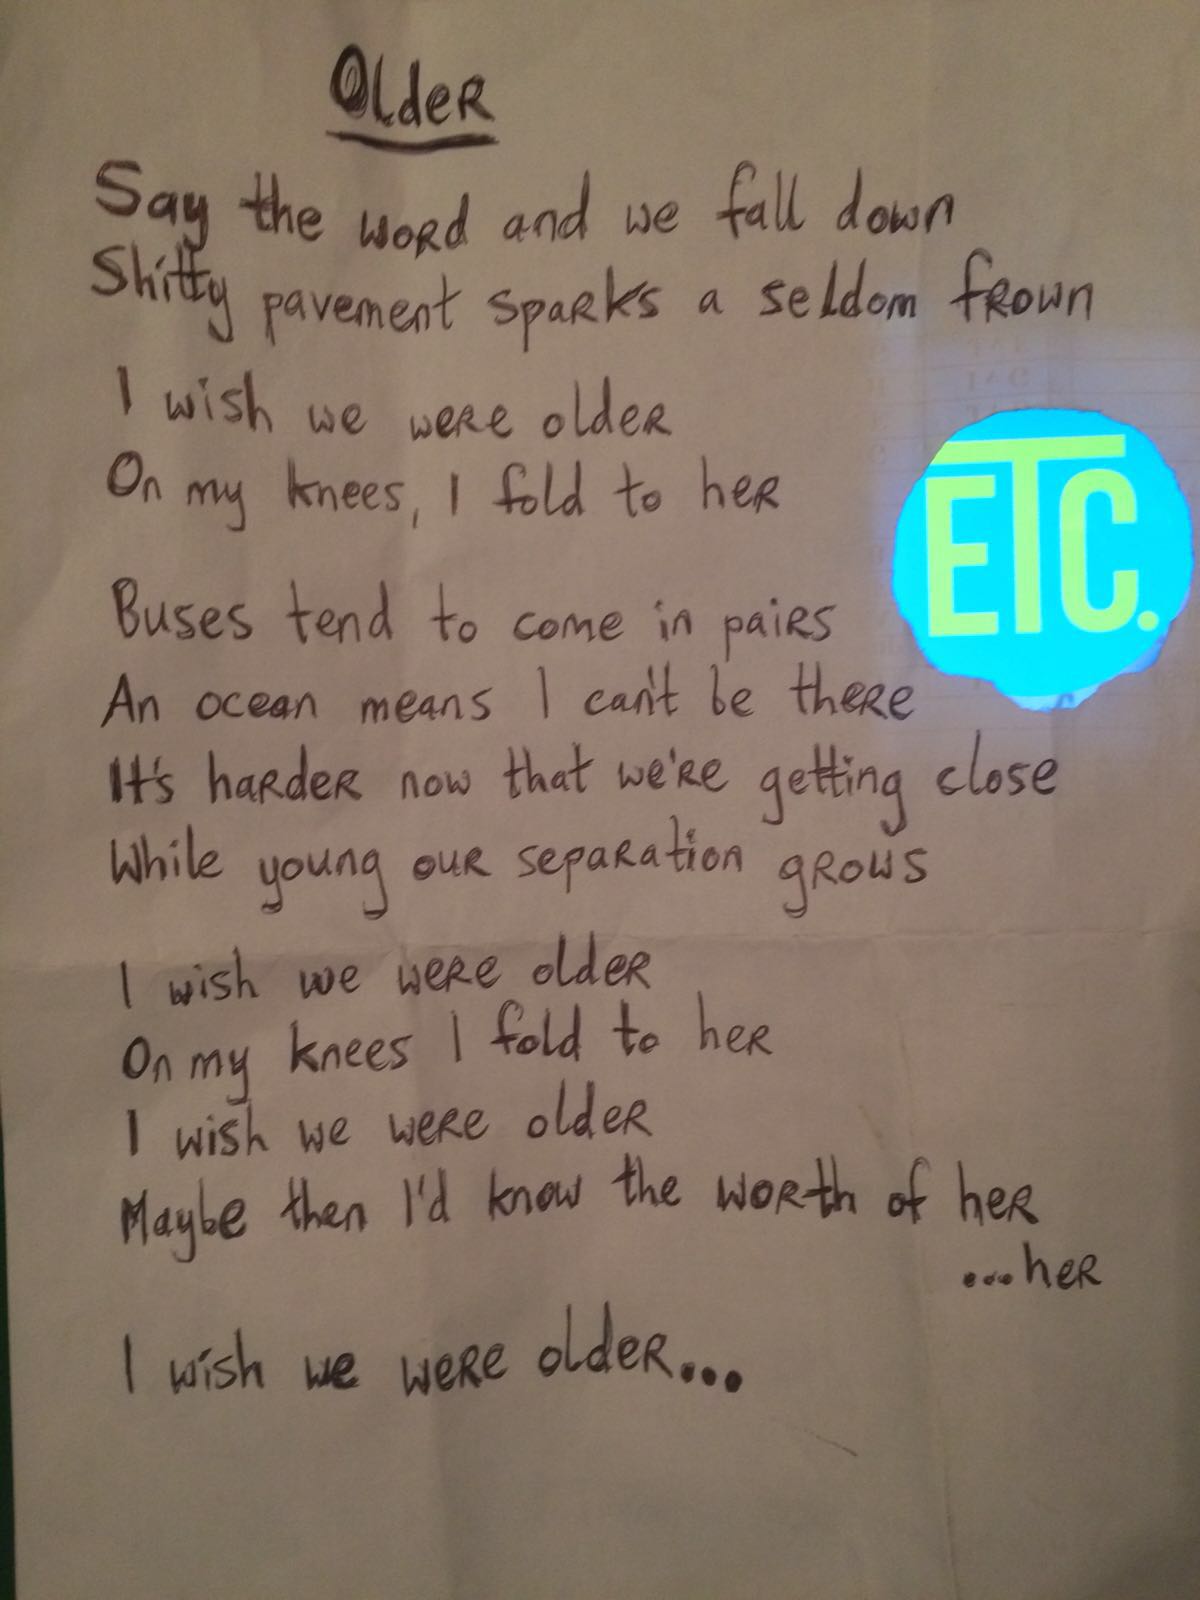 Older
Say the word and we fall down
Shitty pavement sparks a seldom frown
I wish we were older
On my knees, I fold to her
ETC.
Buses tend to come in pairs
An ocean means I can't be there
It's harder now that we're getting close
While young our separation grows
I wish we were older
On my knees I fold to her
I wish we were older
Maybe then I'd know the worth of her
...her
I wish we were older...